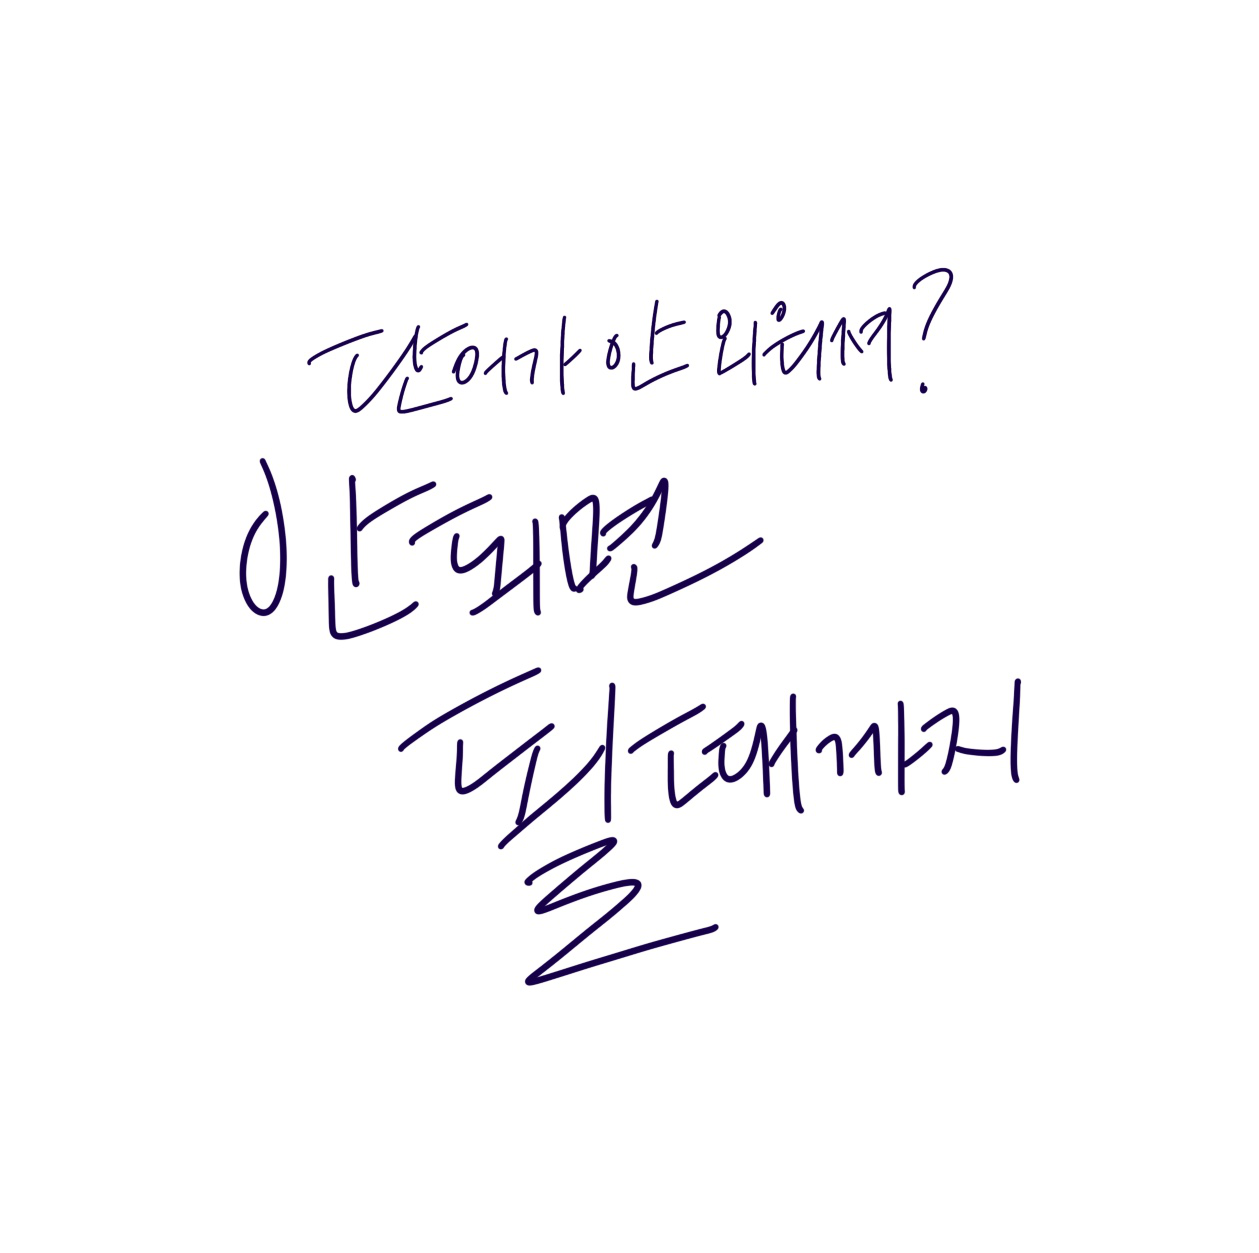 단어가 안 외워져?
안되면
될때까지